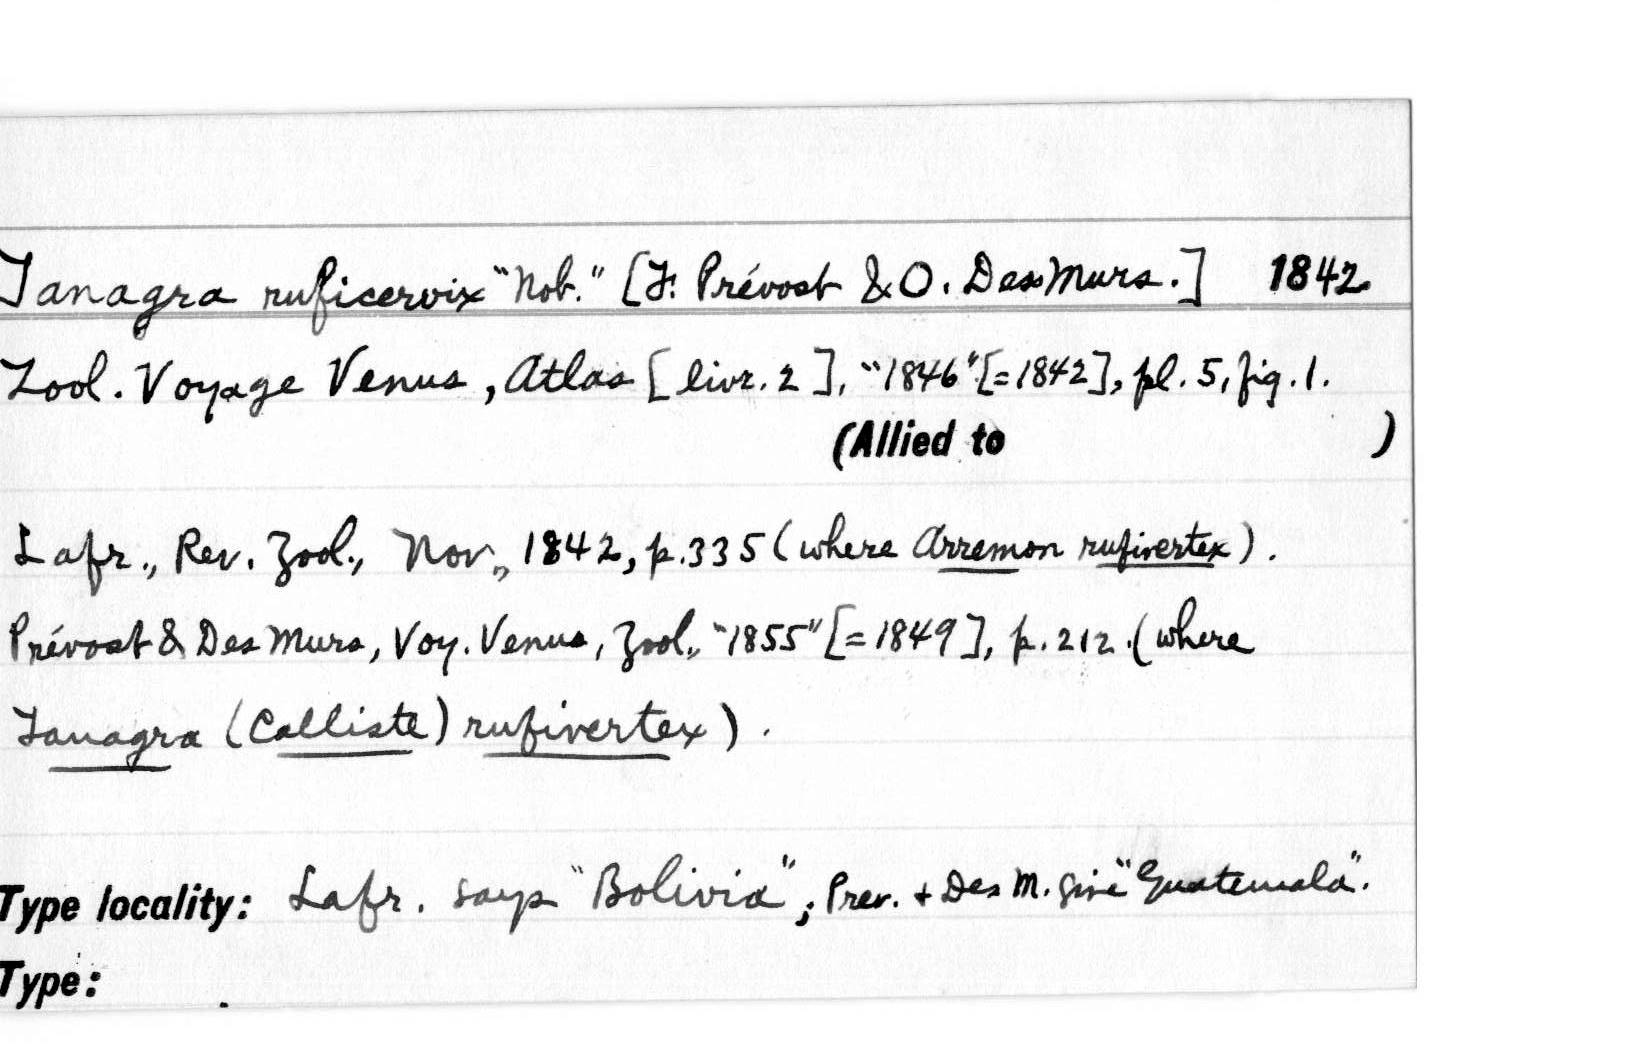 Tanagra ruficervix "Nob." [F. Prévost & O. Des Murs.] 1842
Zool. Voyage Venus, Atlas [livr. 2], "1846" [=1842], pl. 5, fig. 1.
(Allied to )
Lafr., Rev. Zool., Nov., 1842, p. 335 (where Arremon rufivertex).
Prévost & Des Murs, Voy. Venus, Zool., "1855" [=1849], p. 212. (where
Tanagra (Calliste) rufivertex).
Type locality: Lafr. says "Bolivia"; Prev. + Des M. give "Guatemala".
Type: